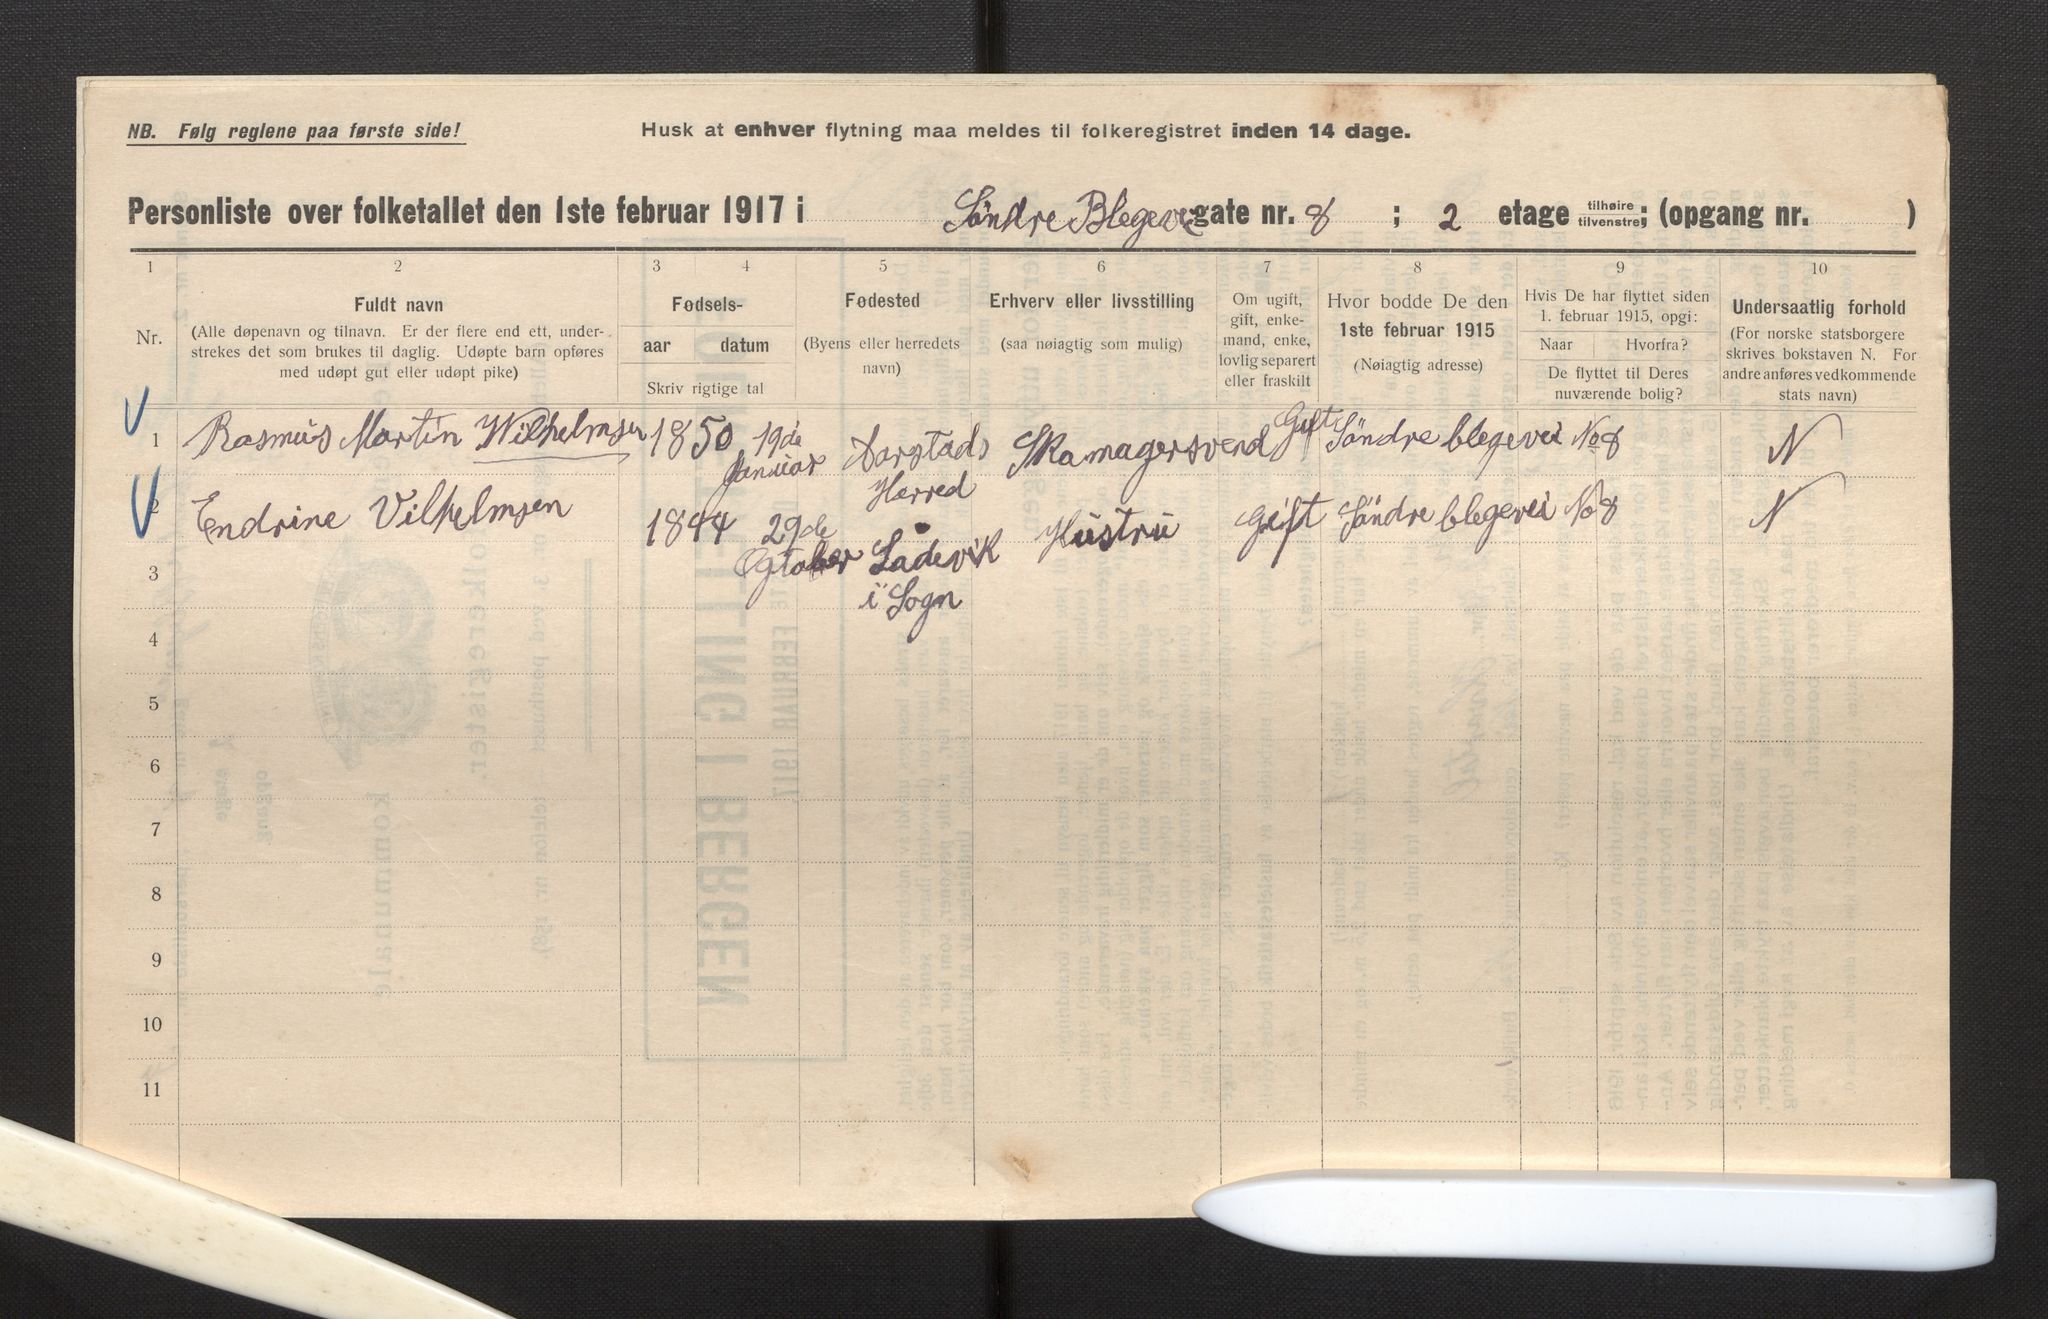 NB. Følg reglene paa første side!
Husk at enhver flytning maa meldes til folkeregistret inden 14 dage.
Personliste over folketallet den 1ste februar 1917 i Søndre Blegevei gate nr. 8 ; 2 etage tilhøire tilvenstre; (opgang nr. )
1 2 3 4 5 6 7 8 9 10
Nr.
Fuldt navn
(Alle døpenavn og tilnavn. Er der flere end ett, under-
strekes det som brukes til daglig. Udøpte barn opføres
med udøpt gut eller udøpt pike)
Fødsels-
aar datum
Skriv rigtige tal
Fødested
(Byens eller herredets
navn)
Erhverv eller livsstilling
(saa nøiagtig som mulig)
Om ugift,
gift, enke-
mand, enke,
lovlig separert
eller fraskilt
Hvor bodde De den
1ste februar 1915
(Nøiagtig adresse)
Hvis De har flyttet siden
1. februar 1915, opgi:
Naar Hvorfra?
De flyttet til Deres
nuværende bolig?
Undersaatlig forhold
(For norske statsborgere
skrives bokstaven N. For
andre anføres vedkommende
stats navn)
1 Rasmus Martin Wilhelmsen 1850 19de Aarstads Skomagersvend Gift Søndre blegevei No 8 N
Januar Herred
2 Endrine Vilhelmsen 1844 29de Hustru Gift Søndre blegevei No 8 N
3 Ogtober Ladevik
i Sogn
4
5
6
7
8
9
10
11